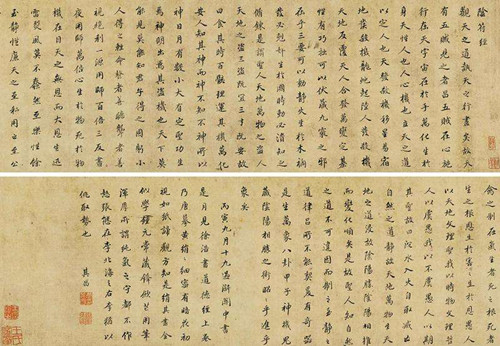 陰符經
觀天之道執天之行盡矣故天
有五賊見之者昌五賊在心施
行於天宇宙在乎手萬化生乎
身天性人也人心機也立天之道
以定人也天發殺機移星易宿
地發殺機龍蛇起陸人發殺機
天地反覆天人合發萬變定基
性有巧拙可以伏藏九竅之邪
在乎三要可以動靜火生于木禍
發必剋奸生于國時動必潰知之
脩鍊謂之聖人天地萬物之盜
天地之盜三盜既宜三才既安故
曰食其時百骸理動其機萬化
安人知其神而神不知不神所以
神日月有數小大有定聖功生
焉神明出焉其盜機也天下莫
能見莫能知君子得之固窮小
人得之輕命瞽者善聽聾者善
視絕利一源用師百倍三反晝
夜用師萬倍心生於物死於物
機在目天之無恩而大恩生迅
雷烈風莫不蠢然至樂性餘
至靜性廉天之至私用之至公
禽之制在氣生者死之根死者
生之根恩生於害害生於恩愚人
以天地文理聖我以時物文理哲
人以虞愚我以不虞愚人以期
其聖故曰沉水入火自取滅亡
自然之道靜故天地萬物生天
地之道浸故陰陽勝陰陽相推
而變化順矣是故聖人知自然
之道不可違因而制之至靜之
道律曆所不能契爰有奇器
是生萬象八卦甲子神機鬼
藏陰陽相勝之術昭昭乎進乎
象矣
丙寅九月十九西湖舟中書
是月見徐浩書道德經上卷
乃唐摹黃絹細密有暗花初
視如紙諦觀方知是絹其書
似學鍾元常用筆
深厚所謂純氣之守都不作
怒張態在李北海之右李猶以
仄取勢也
其昌